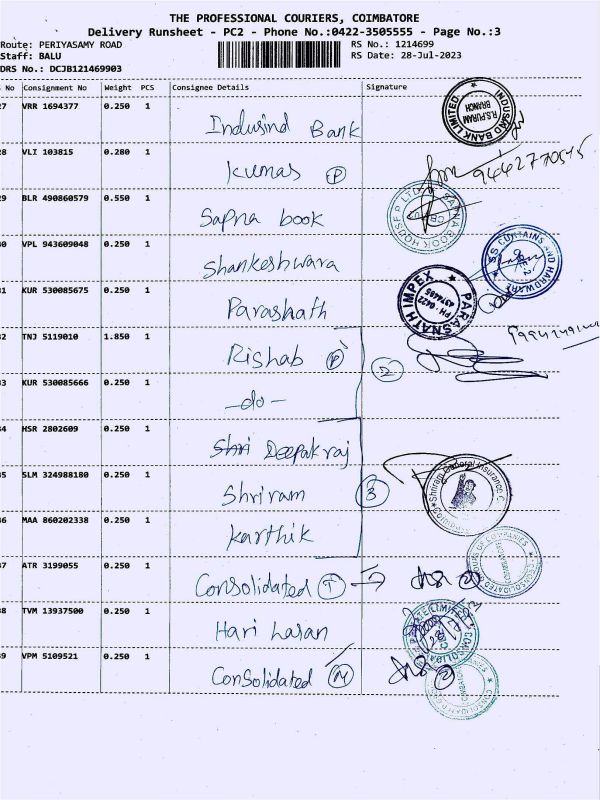 THE PROFESSIONAL COURIERS, COIMBATORE
Delivery Runsheet - PC2 - Phone No.:0422-3505555 - Page No.:3
Route: PERIYASAMY ROAD RS No.: 1214699
Staff: BALU RS Date: 28-Jul-2023
DRS No.: DCJB121469903
No Consignment No Weight PCS Consignee Details Signature
7 VRR 1694377 0.250 1 Indusind Bank
INDUSIND BANK LIMITED R.S.PURAM BRANCH
8 VLI 103815 0.280 1 Kumas P
9442770515
9 BLR 490860579 0.550 1 Sapna book
SAPNA BOOK HOUSE P LTD CBE
0 VPL 943609048 0.250 1 Shankeshwara
SS CURTAINS AND HARDWARE
1 KUR 530085675 0.250 1 Parashath
PARASNATH IMPEX PH - 0422 4374485
2 TNJ 5119010 1.850 1 Rishab P
2
3 KUR 530085666 0.250 1 -do-
4 HSR 2802609 0.250 1 Shri Deepakraj
5 SLM 324988180 0.250 1 Shriram
3
Shriram General Insurance C
6 MAA 860202338 0.250 1 Karthik
7 ATR 3199055 0.250 1 Consolidated T
OF COMPANIES
8 TVM 13937500 0.250 1 Hari Lasan
LIMITED CONSOLIDA
9 VPM 5109521 0.250 1 Consolidated M
2